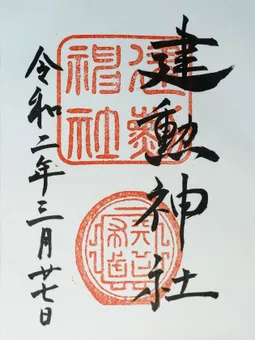 建勲神社
令和二年三月廿七日
建勲神社